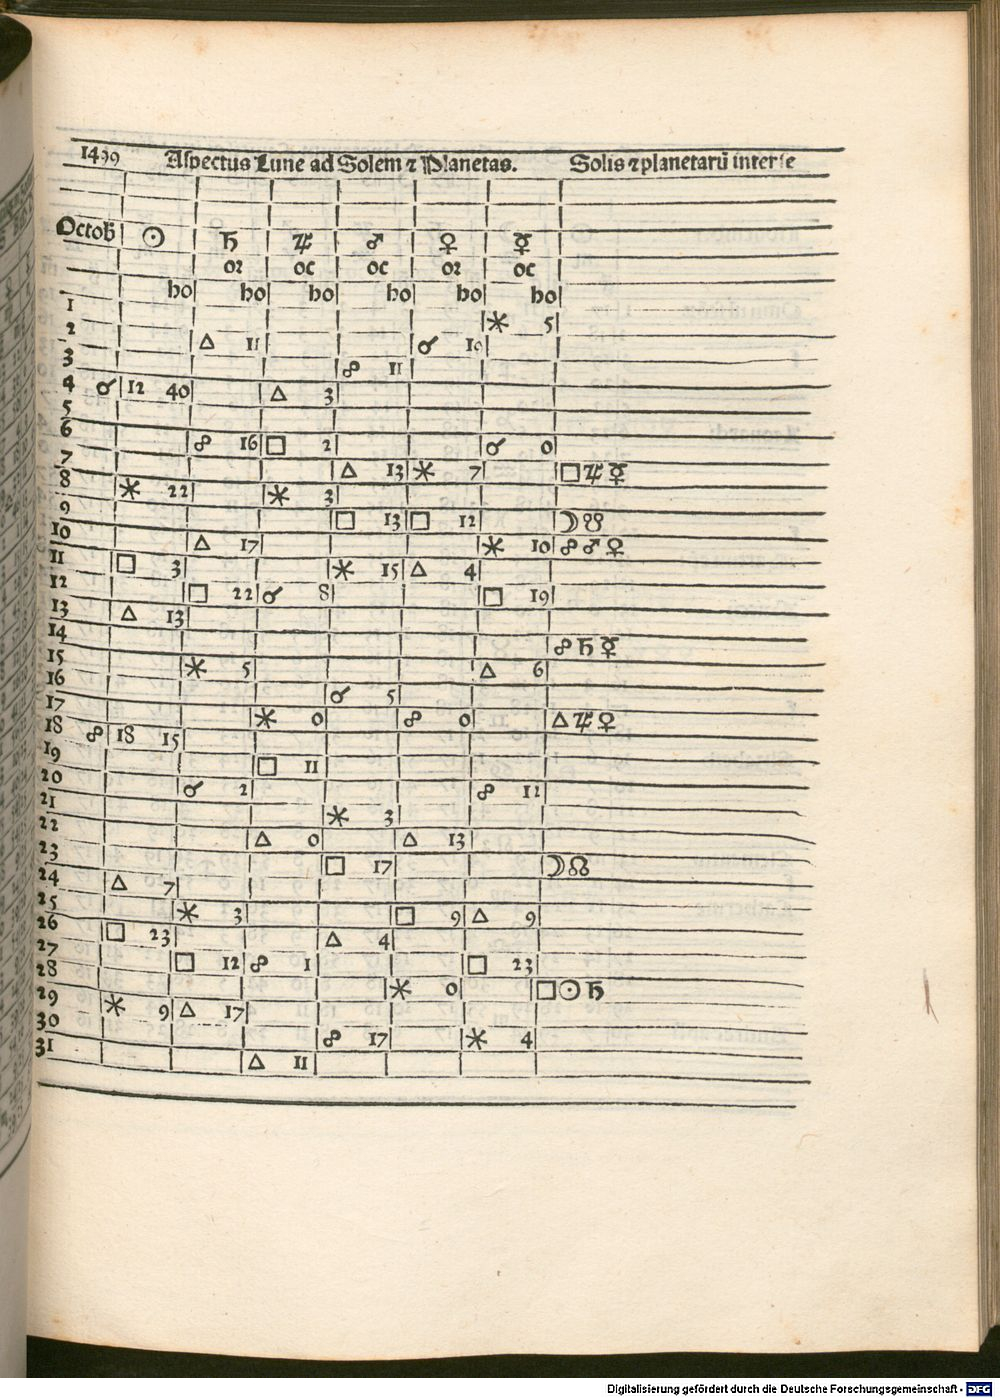 1499 Aspectus Lune ad Solem ⁊ Planetas. Solis ⁊ planetarū inter se
Octob̄ ☉ ♄ ♃ ♂ ♀ ☿
oꝛ oc oc oꝛ oc
ho ho ho ho ho ho
1 ⚹ 5
2 △ 11 ☌ 10
3 ☍ 11
4 ☌ 12 40 △ 3
5
6 ☍ 16 □ 2 ☌ 0
7 △ 13 ⚹ 7 □ ♃ ☿
8 ⚹ 22 ⚹ 3
9 □ 13 □ 12 ☽ ☋
10 △ 17 ⚹ 10 ☍ ♂ ♀
11 □ 3 ⚹ 15 △ 4
12 □ 22 ☌ 8 □ 19
13 △ 13
14 ☍ ♄ ☿
15 ⚹ 5 △ 6
16 ☌ 5
17 ⚹ 0 ☍ 0 △ ♃ ♀
18 ☍ 18 15
19 □ 11
20 ☌ 2 ☍ 12
21 ⚹ 3
22 △ 0 △ 13
23 □ 17 ☽ ☊
24 △ 7
25 ⚹ 3 □ 9 △ 9
26 □ 23 △ 4
27 □ 12 ☍ 1 □ 23
28 ⚹ 0 □ ☉ ♄
29 ⚹ 9 △ 17
30 ☍ 17 ⚹ 4
31 △ 11
Digitalisierung gefördert durch die Deutsche Forschungsgemeinschaft - DFG